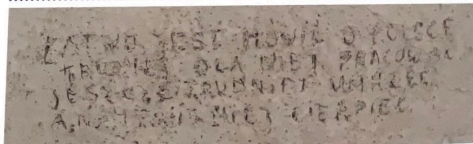 ŁATWO JEST MÓWIĆ O POLSCE
TRUDNIEJ DLA NIEJ PRACOWAĆ
JESZCZE TRUDNIEJ UMRZEĆ
A NAJTRUDNIEJ CIERPIEĆ